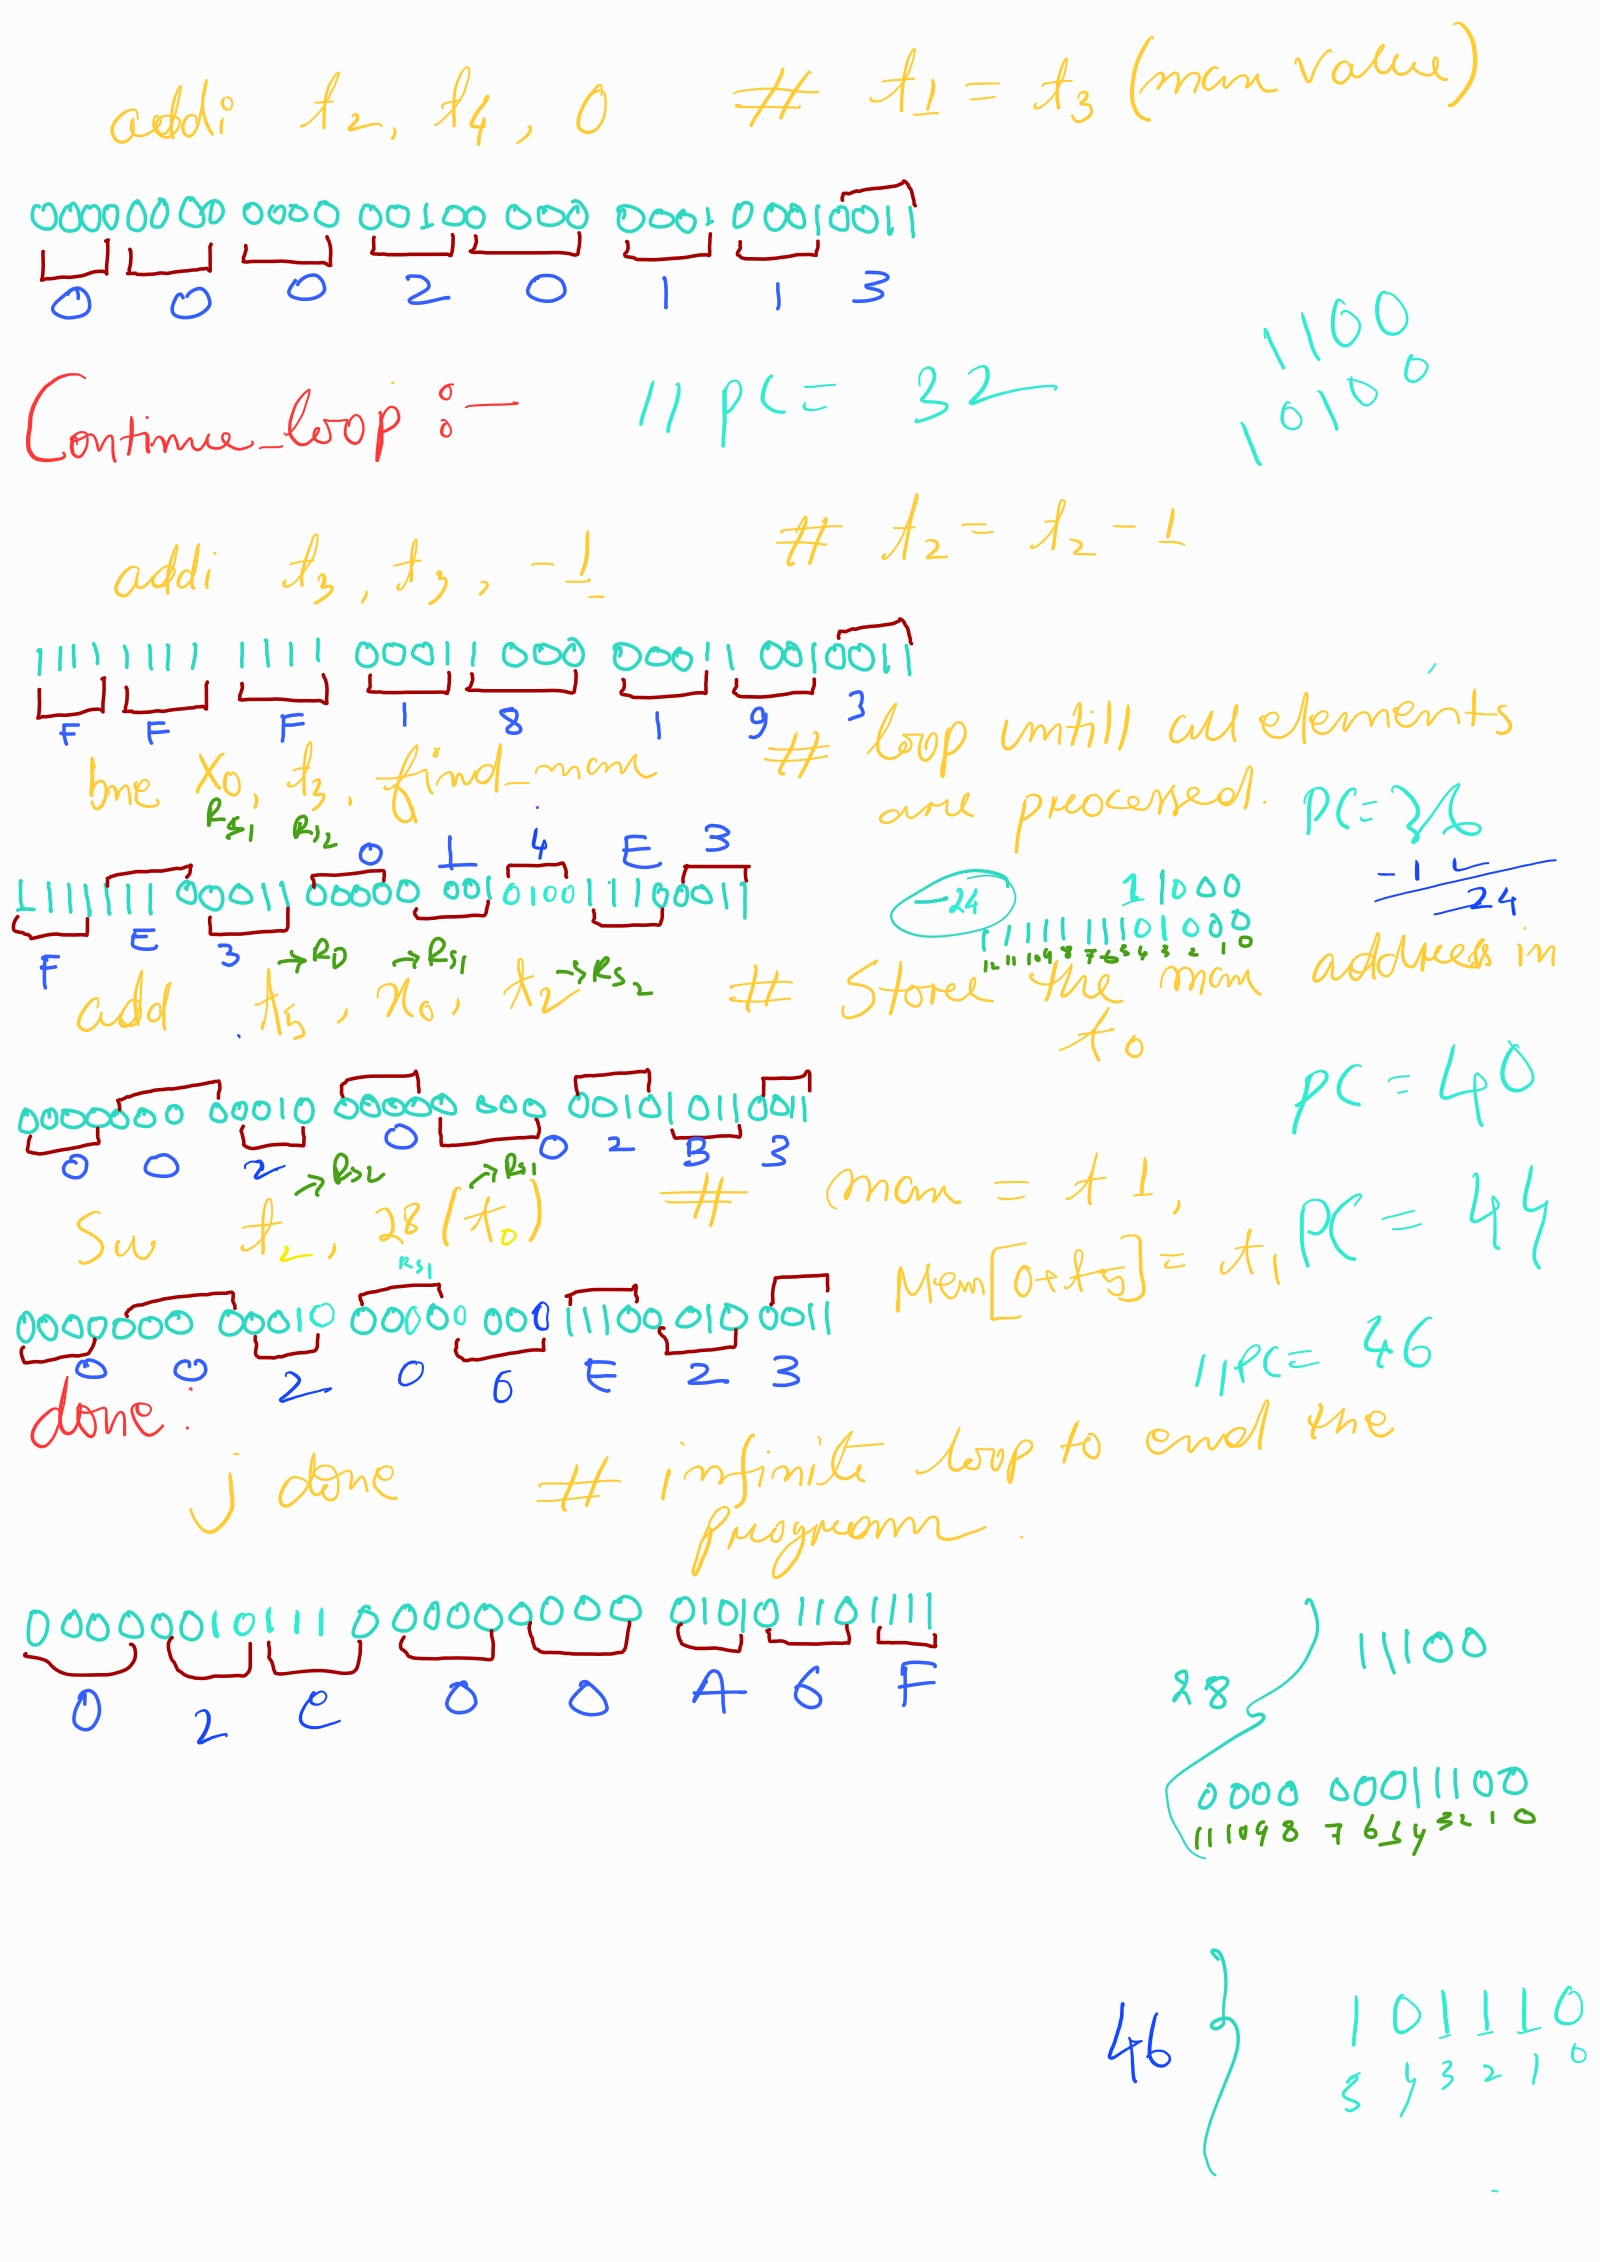 addi t2, t4, 0 # t1 = t3 (man value)
0000 0000 0000 0010 0000 0001 0001 0011
0 0 0 2 0 1 1 3
1100
10100
Continue_loop :- // PC = 32
addi t3, t3, -1 # t2 = t2 - 1
1111 1111 1111 0001 1000 0001 1001 0011
F F F 1 8 1 9 3
bne x0, t3, find_man # loop untill all elements
are processed. PC = 36
Rs1 Rs2
- 12
24
0 1 4 E 3
1111111 00011 00000 001 0100 1 1100011
F E 3
-24 11000
1111111101000
12 11 10 9 8 7 6 5 4 3 2 1 0
→ RD → Rs1 → Rs2
add t5, x0, t2 # Store the man address in
t0
PC = 40
0000000 00010 00000 000 00101 0110011
0 0 2 0 0 2 B 3
→ Rs2 → Rs1
sw t2, 28 (t0) # man = t1,
Mem[0+t5] = t1 PC = 44
Rs1
0000000 00010 00000 000 11100 0100011
0 0 2 0 6 E 2 3
// PC = 46
done :
j done # infinite loop to end the
program .
0000 0010 1110 0000 0000 0101 0110 1111
0 2 C 0 0 A 6 F
28 11100
0000 00011100
11 10 9 8 7 6 5 4 3 2 1 0
46 101110
5 4 3 2 1 0